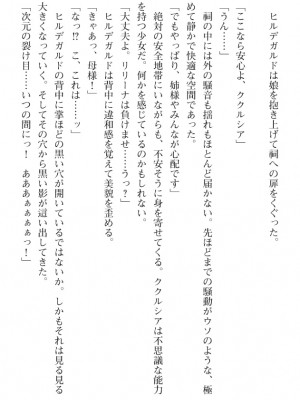 ヒルデガルドは娘を抱き上げて祠への扉をくぐった。
「ここなら安心よ、ククルシア」
「うん……」
祠の中には外の騒音も揺れもほとんど届かない。先ほどまでの騒動がウソのような、極
めて静かで快適な空間であった。
「でもやっぱり、姉様やみんなが心配です」
絶対の安全地帯にいながら、不安そうに身を寄せてくる。ククルシアは不思議な能力
を持つ少女だ。何かを感じているのかもしれない。
「大丈夫よ。リリーナは負けませ……うっ?」
ヒルデガルドは背中に違和感を覚えて美貌を歪める。
「きゃあっ、母様!」
「なっ!?　こ、これは……ッ」
ヒルデガルドの背中に掌ほどの黒い穴が開いているではないか。しかもそれは見る見る
大きくなっていく。そしてその穴から黒い影が這い出してきた。
「次元の裂け目……いつの間にっ!　ああああぁぁっ!」